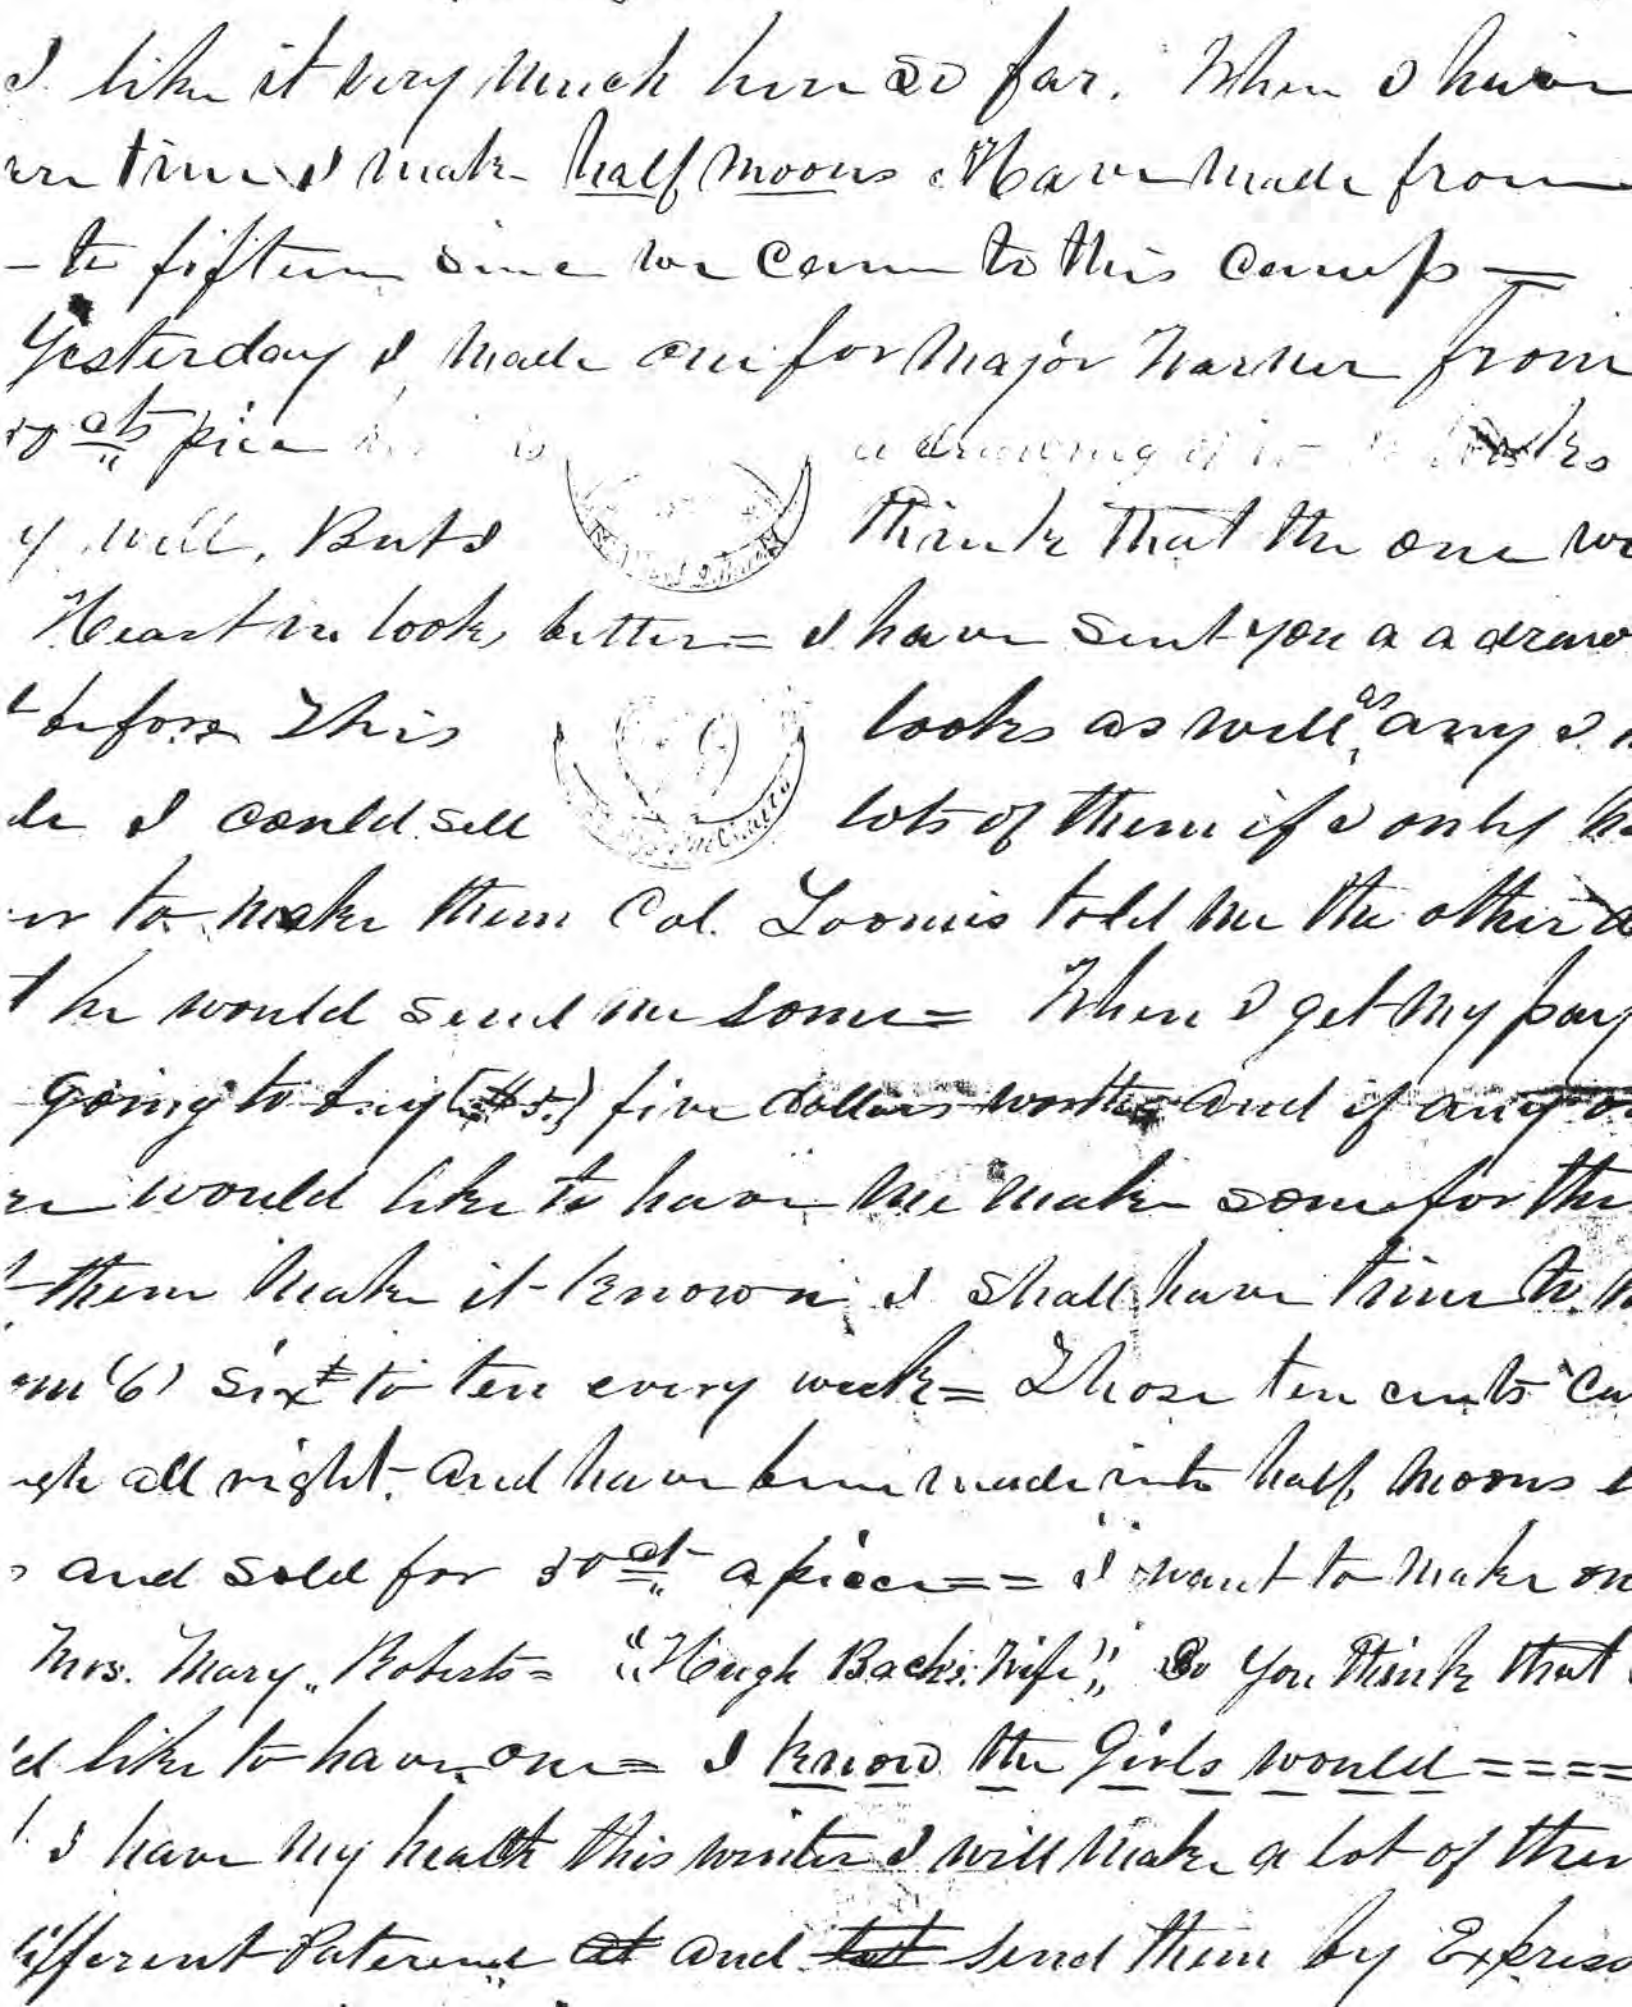 I like it very much here so far. When I have
time I make half moons. Have made from
– to fifteen since we came to this camp —
Yesterday I made one for Major Warner from
50 cts piece is a drawing of it looks
y well, But I think that the one w
Heart in looks better = I have sent you a a draw
t before This looks as well as any I m
de I could sell lots of them if I only ha
er to make them Col. Loomis told me the other d
t he would send me some = When I get my pay
going to buy ($5.) five dollars worth and if any o
re would like to have me make some for the
t them make it known, I shall have time to m
om (6) six to ten every week = Those ten cents ca
ugh all right. and have been made into half moons
s and sold for 50 ct apiece == I want to make on
Mrs. Mary Roberts = "Hugh Back's Wife", Do you think that
'd like to have one = I know the Girls would ====
I have my health this winter I will make a lot of them
different Paterens at and send them by Express